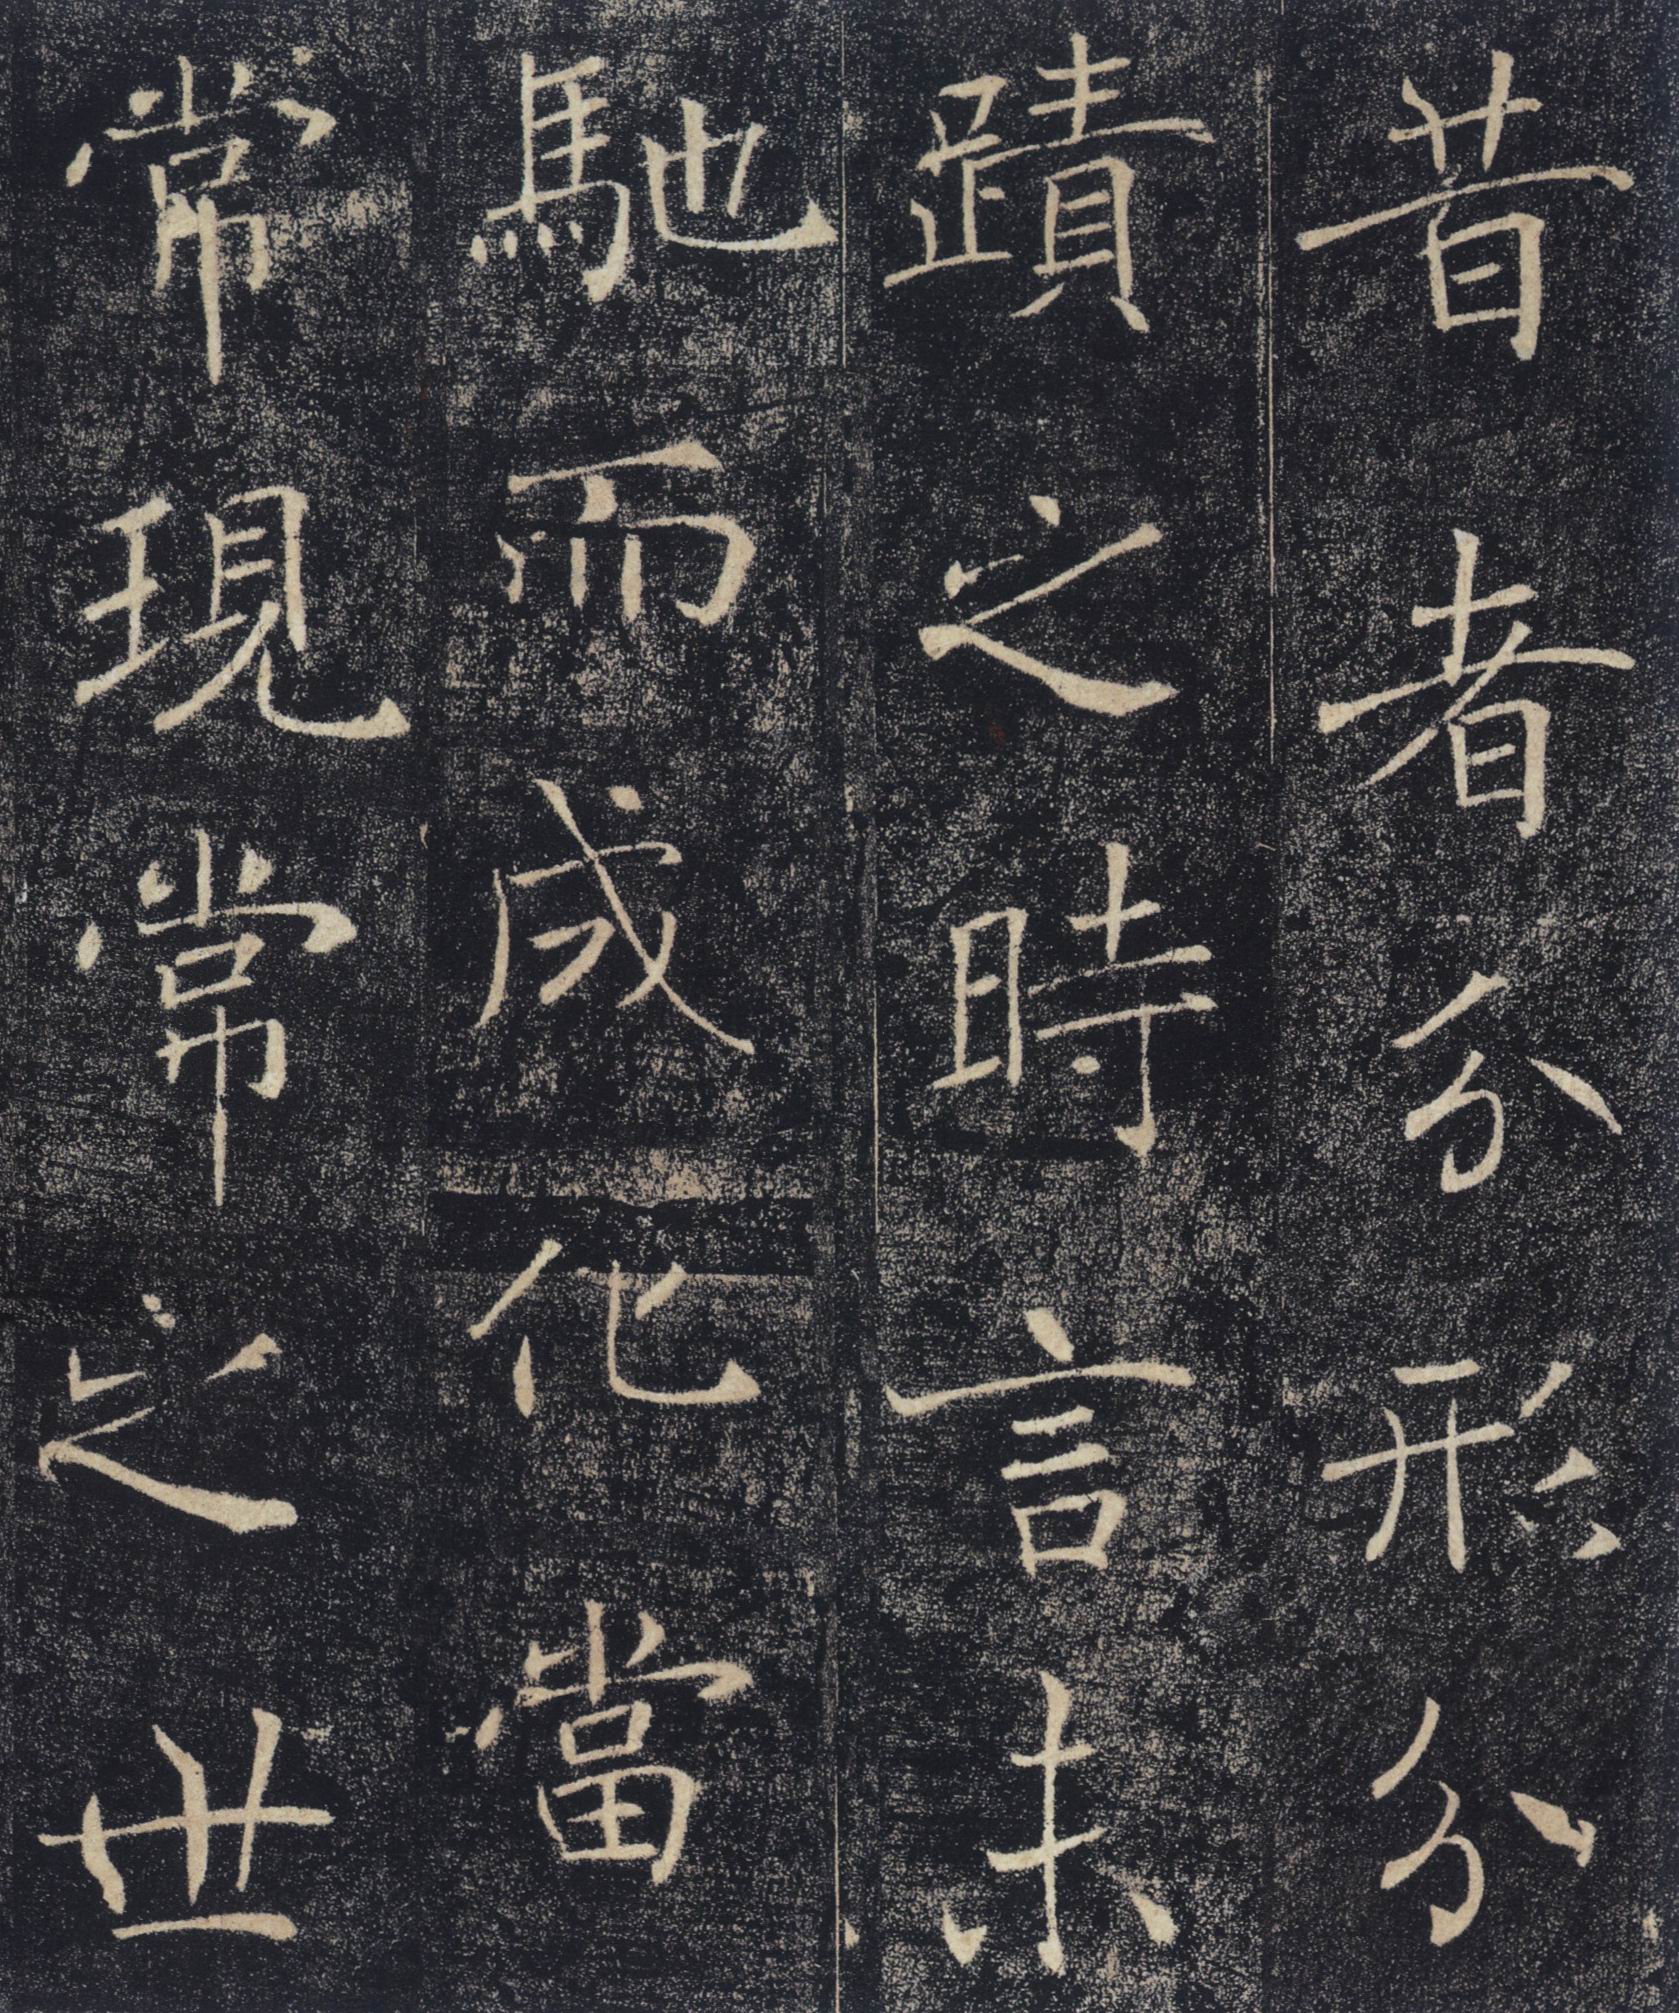 昔者分形分
蹟之時言未
馳而成化當
常現常之世